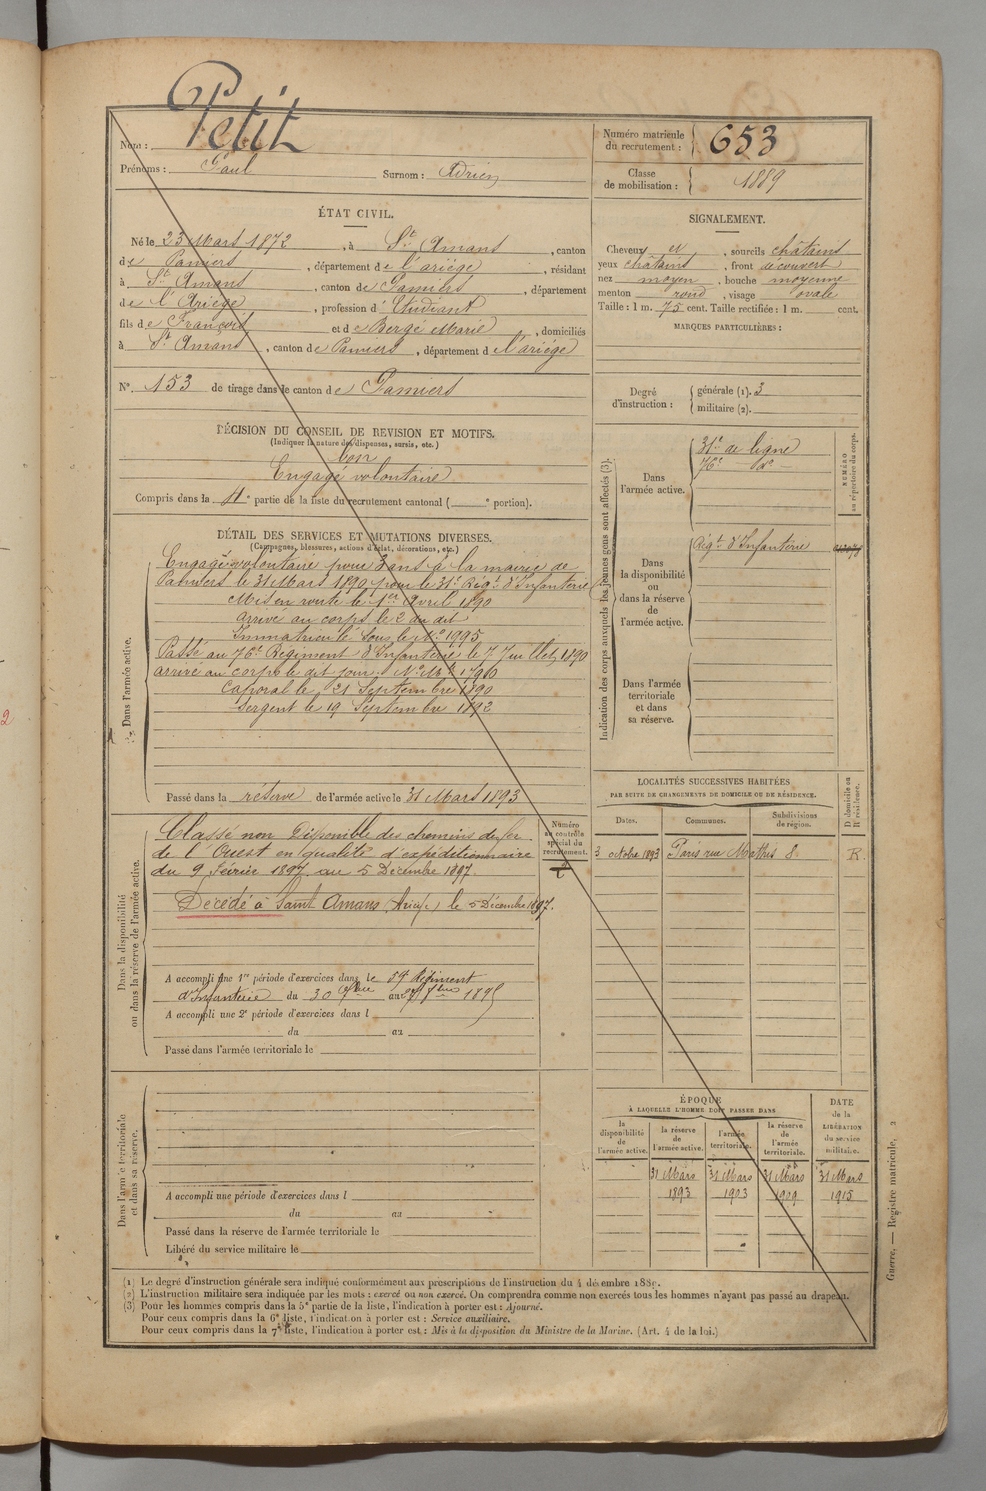 Petit
Nom :
Prénoms : Paul Surnom : Adrien
Numéro matricule du recrutement : 653
Classe de mobilisation : 1889
ÉTAT CIVIL.
Né le 23 Mars 1872, à St Amans, canton
de Pamiers, département de l'ariège, résidant
à St Amans, canton de Pamiers, département
de l'Ariège, profession d'Etudiant
fils de François et de Berge Marie, domiciliés
à St Amans, canton de Pamiers, département de l'ariége
N° 153 de tirage dans le canton de Pamiers
DÉCISION DU CONSEIL DE REVISION ET MOTIFS.
(Indiquer la nature des dispenses, sursis, etc.)
bon
Engagé volontaire
Compris dans la 4e partie de la liste du recrutement cantonal ( e portion).
DÉTAIL DES SERVICES ET MUTATIONS DIVERSES.
(Campagnes, blessures, actions d'éclat, décorations, etc.)
Dans l'armée active.
Engagé volontaire pour 3 ans à la mairie de
Pamiers le 31 Mars 1890 pour le 31e Régt d'Infanterie
Mis en route le 1er Avril 1890
arrivé au corps le 2 du dit
Immatriculé sous le No 1995
Passé au 76e Régiment d'Infanterie le 7 Juillet 1890
arrivé au corps le dit jour, No Mle 1790
Caporal le 21 Septembre 1890
Sergent le 19 Septembre 1892
Passé dans la réserve de l'armée active le 31 Mars 1893
Dans la disponibilité
ou dans la réserve de l'armée active.
Numéro
au contrôle
spécial du
recrutement.
Classé non Disponible des chemins de fer
de l'Ouest en qualité d'expéditionnaire
du 9 Février 1897 au 5 Décembre 1897.
Décédé à Saint Amans (Ariège) le 5 Décembre 1897.
A accompli une 1re période d'exercices dans le 59e Régiment
d'Infanterie du 30 au 1895
A accompli une 2e période d'exercices dans l
du au
Passé dans l'armée territoriale le
Dans l'armée territoriale
et dans sa réserve.
A accompli une période d'exercices dans l
du au
Passé dans la réserve de l'armée territoriale le
Libéré du service militaire le
SIGNALEMENT.
Cheveux et, sourcils châtains
yeux châtains, front découvert
nez moyen, bouche moyenne
menton rond, visage ovale
Taille : 1 m. 75 cent. Taille rectifiée : 1 m. cent.
MARQUES PARTICULIÈRES :
Degré d'instruction :
générale (1). 3
militaire (2).
Indication des corps auxquels les jeunes gens sont affectés (3).
NUMÉRO
au répertoire du corps.
Dans
l'armée active.
31e de ligne
76e do
Dans
la disponibilité
ou
dans la réserve
de
l'armée active.
Régt d'Infanterie
Dans l'armée
territoriale
et dans
sa réserve.
LOCALITÉS SUCCESSIVES HABITÉES
PAR SUITE DE CHANGEMENTS DE DOMICILE OU DE RÉSIDENCE.
D. domicile ou
R. résidence.
Dates. Communes. Subdivisions de région.
3 octobre 1893 Paris rue Mathis 8. R.
ÉPOQUE
À LAQUELLE L'HOMME DOIT PASSER DANS
DATE
de la
LIBÉRATION
du service
militaire.
la disponibilité de l'armée active.
la réserve de l'armée active.
l'armée territoriale.
la réserve de l'armée territoriale.
31 Mars 31 Mars 31 Mars 31 Mars
1893 1903 1909 1915
(1) Le degré d'instruction générale sera indiqué conformément aux prescriptions de l'instruction du 4 décembre 1889.
(2) L'instruction militaire sera indiquée par les mots : exercé ou non exercé. On comprendra comme non exercés tous les hommes n'ayant pas passé au drapeau.
(3) Pour les hommes compris dans la 5e partie de la liste, l'indication à porter est : Ajourné.
Pour ceux compris dans la 6e liste, l'indication à porter est : Service auxiliaire.
Pour ceux compris dans la 7e liste, l'indication à porter est : Mis à la disposition du Ministre de la Marine. (Art. 4 de la loi.)
Guerre. — Registre matricule. 2